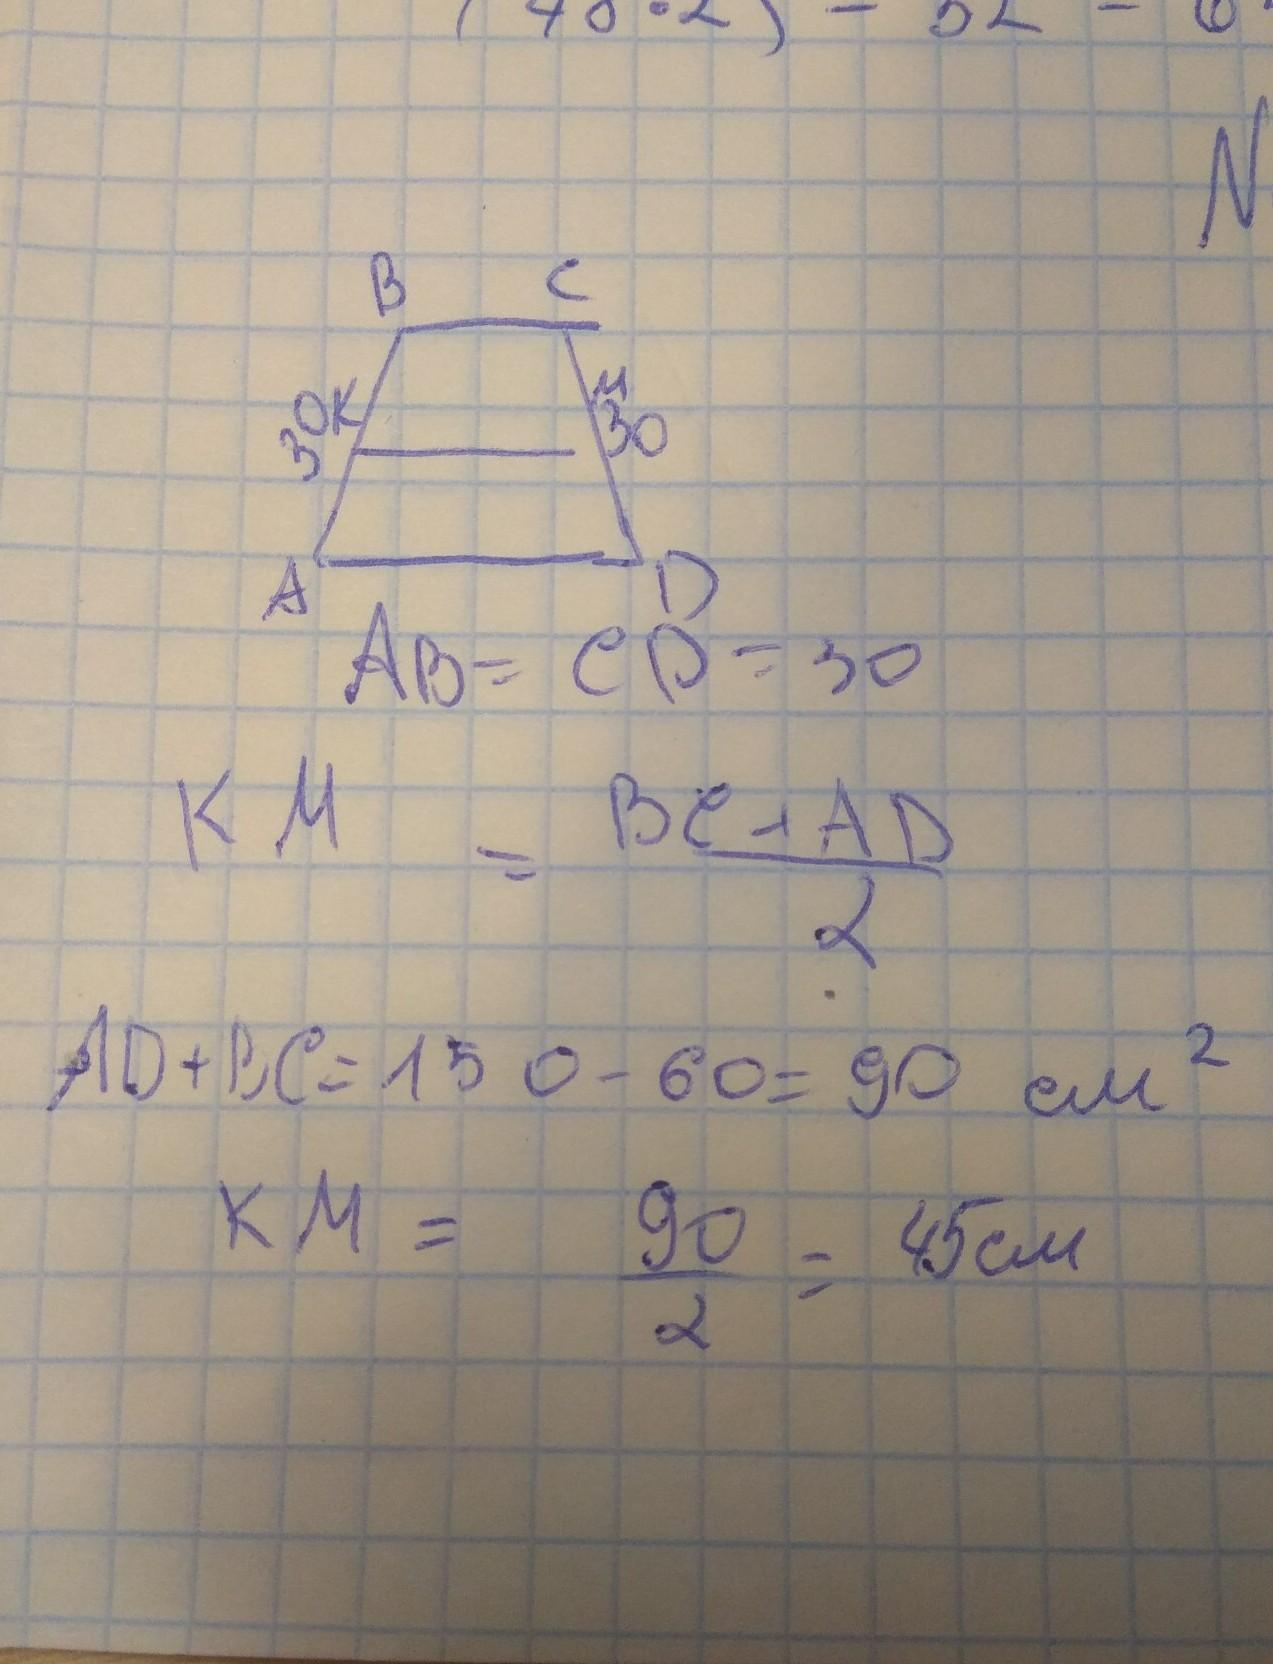 (48·2) - 52 - 6
N
B C
30K M
30
A D
AB = CD = 30
KM = BC+AD
2
AD+BC = 150 - 60 = 90 см²
KM = 90/2 = 45см